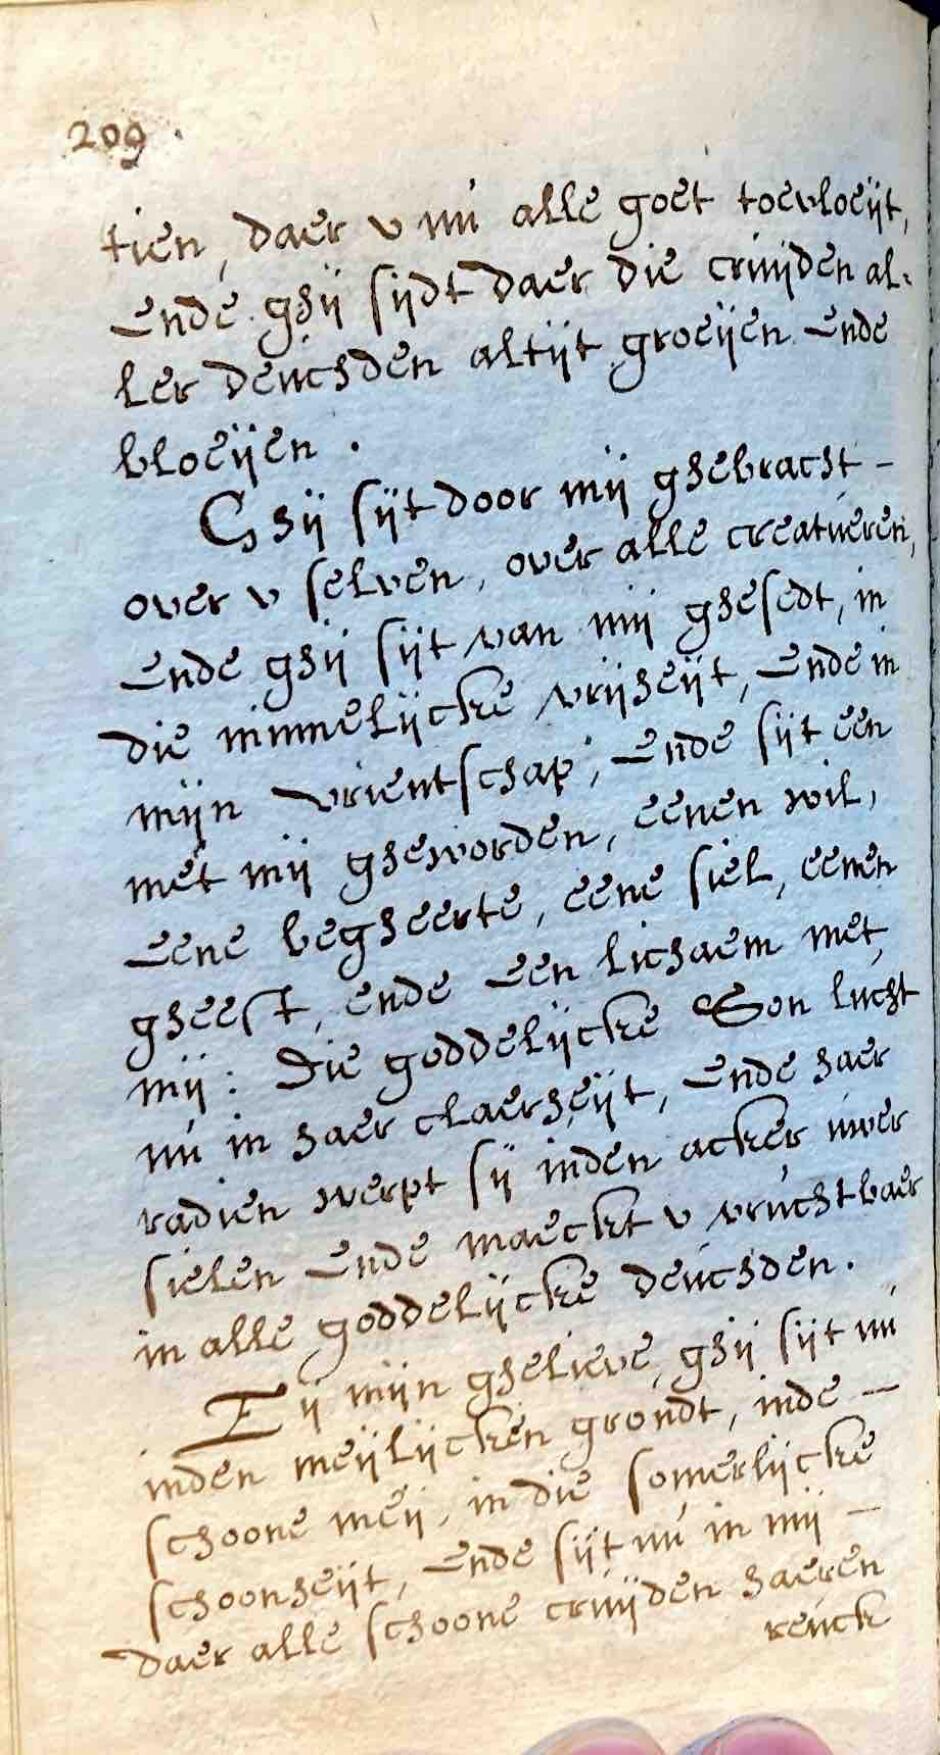 209.
tien, daer v nú alle goet toevloeijt,
Ende ghij sijdt daer die crúijden al:
ler deúchden altijt groeijen Ende
bloeijen.
Ghij sijt door mij ghebracht -
over v selven, over alle creatúeren,
Ende ghij sijt van mij ghesedt, in
die minnelijcke vrijheijt, Ende in
mijn vrientschap, Ende sijt een
met mij gheworden, eenen wil,
Eene begheerte, eene siel, eenen
gheest, ende Een lichaem met
mij: Die goddelijcke Son lúcht
nú in haer claerheijt, Ende haer
radien werpt sij inden acker úwer
sielen Ende maeckt v vrúchtbaer
in alle goddelijcke deúchden.
Eij mijn ghelieve, ghij sijt nú
inden meijlijcken grondt, inde -
schoone meij, in die somerlijcke
schoonheijt, Ende sijt nú in mij -
daer alle schoone crúijden haeren
reúck